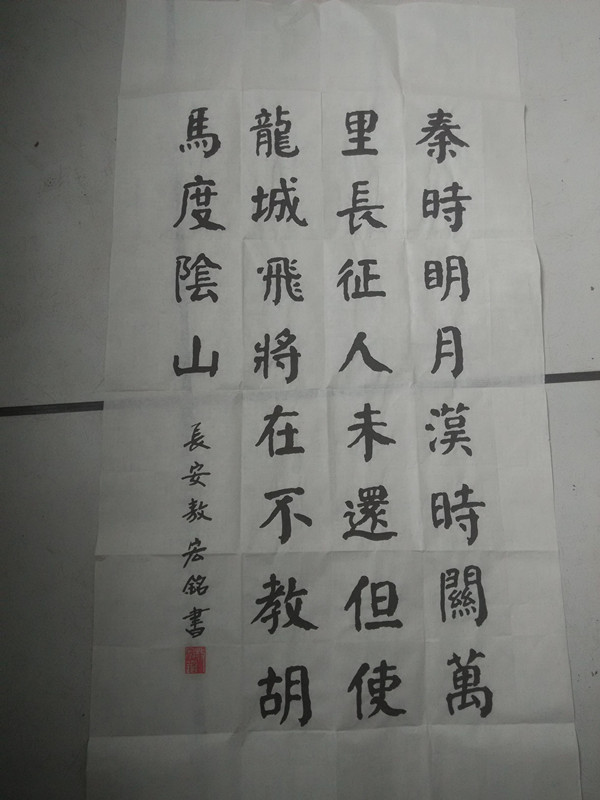 秦時明月漢時關萬
里長征人未還但使
龍城飛將在不教胡
馬度陰山
長安敖宏銘書